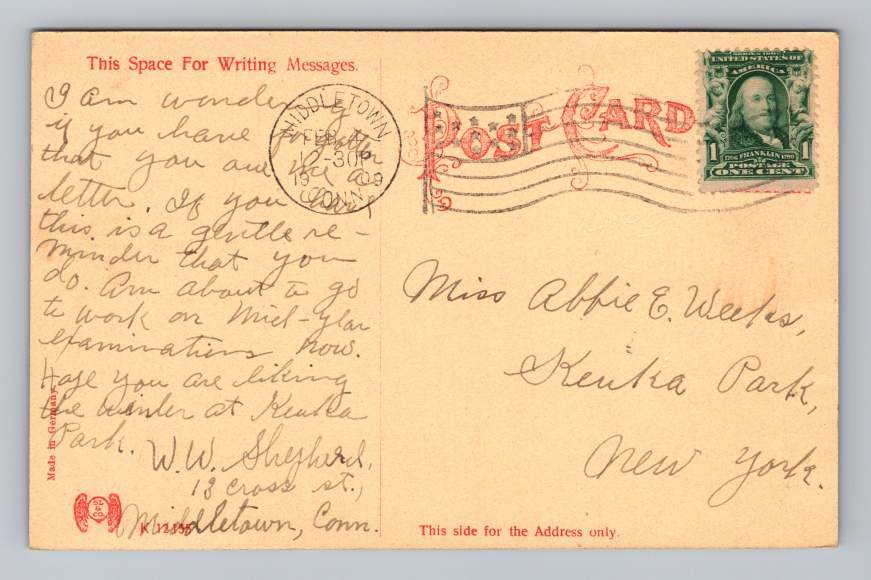 This Space For Writing Messages.
I am wondering
if you have forgotten
that you owe me a
letter. If you have,
this is a gentle re-
minder that you
do. Am about to go
to work on Mid-year
examinations now.
Hope you are liking
the winter at Keuka
Park.
W.W. Shepherd,
13 Cross st.,
Middletown, Conn.
Made in Germany.
MIDDLETOWN
FEB
12-30P
19 09
CONN.
POST CARD
SERIES 1902
UNITED STATES OF
AMERICA
1 1
1706 FRANKLIN 1790
POSTAGE
ONE CENT
Miss Abbie E. Weeks,
Keuka Park,
New York.
This side for the Address only.